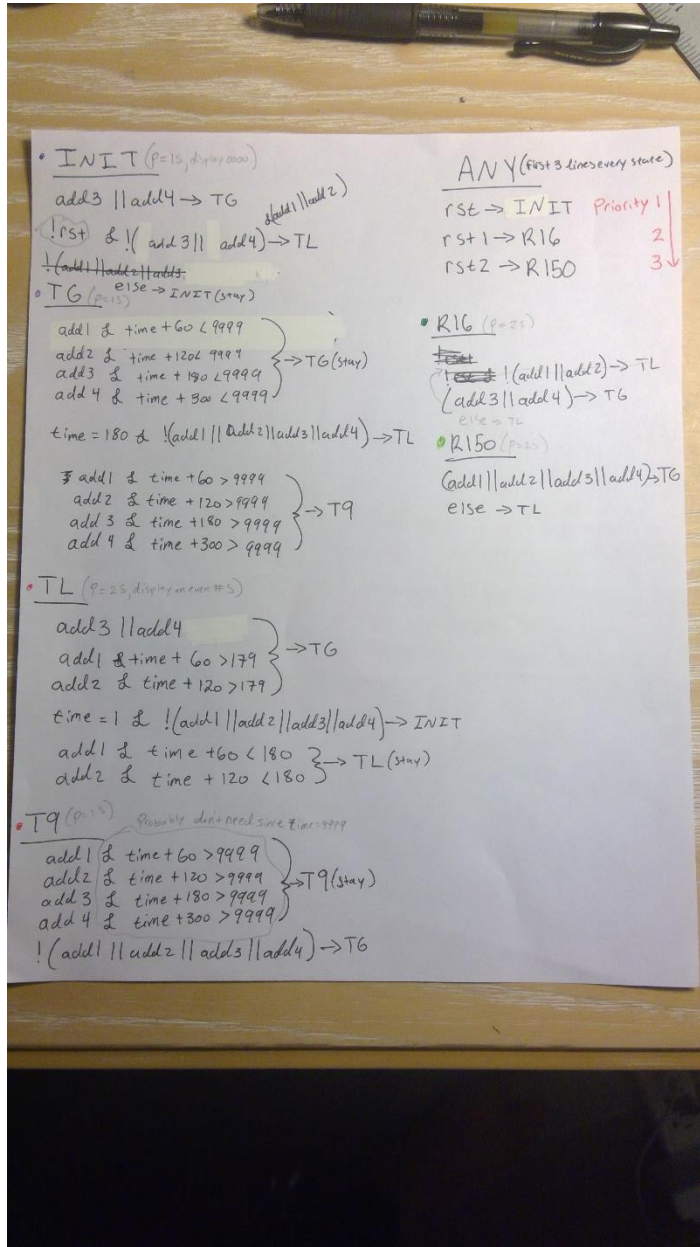 INIT (P=1S, display 0000)
add3 || add4 → TG
!rst & !( add3 || add4) & (add1 || add2) → TL
!(add1 || add2 || add3
else → INIT (stay)
TG (P=1S)
add1 & time + 60 < 9999
add2 & time + 120 < 9999
add3 & time + 180 < 9999
add4 & time + 300 < 9999
→ TG (stay)
time = 180 & !(add1 || add2 || add3 || add4) → TL
add1 & time + 60 > 9999
add2 & time + 120 > 9999
add3 & time + 180 > 9999
add4 & time + 300 > 9999
→ T9
TL (P=2S, display on even #s)
add3 || add4
add1 & time + 60 > 179
add2 & time + 120 > 179
→ TG
time = 1 & !(add1 || add2 || add3 || add4) → INIT
add1 & time + 60 < 180
add2 & time + 120 < 180
→ TL (stay)
T9 (P=1S) Probably don't need since time=9999
add1 & time + 60 > 9999
add2 & time + 120 > 9999
add3 & time + 180 > 9999
add4 & time + 300 > 9999
→ T9 (stay)
!(add1 || add2 || add3 || add4) → TG
ANY (first 3 lines every state)
rst → INIT Priority 1
rst1 → R16 2
rst2 → R150 3
R16 (P=2S)
!(add1 || add2) → TL
(add3 || add4) → TG
else → TL
R150 (P=2S)
(add1 || add2 || add3 || add4) → TG
else → TL